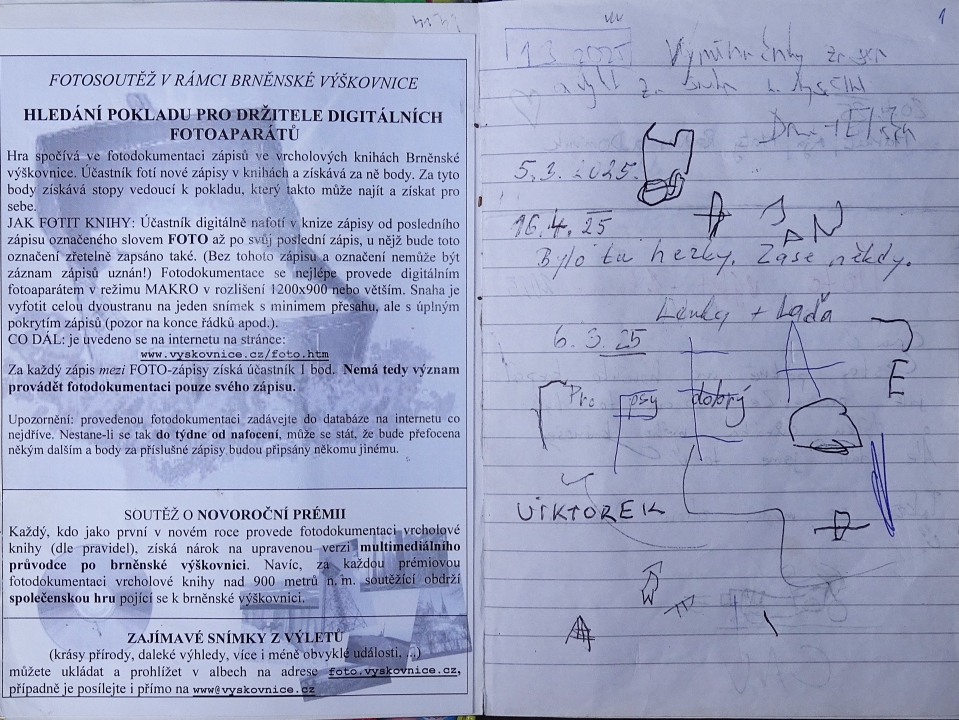 FOTOSOUTĚŽ V RÁMCI BRNĚNSKÉ VÝŠKOVNICE
HLEDÁNÍ POKLADU PRO DRŽITELE DIGITÁLNÍCH
FOTOAPARÁTŮ
Hra spočívá ve fotodokumentaci zápisů ve vrcholových knihách Brněnské
výškovnice. Účastník fotí nové zápisy v knihách a získává za ně body. Za tyto
body získává stopy vedoucí k pokladu, který takto může najít a získat pro
sebe.
JAK FOTIT KNIHY: Účastník digitálně nafotí v knize zápisy od posledního
zápisu označeného slovem FOTO až po svůj poslední zápis, u nějž bude toto
označení zřetelně zapsáno také. (Bez tohoto zápisu a označení nemůže být
záznam zápisů uznán!) Fotodokumentace se nejlépe provede digitálním
fotoaparátem v režimu MAKRO v rozlišení 1200x900 nebo větším. Snaha je
vyfotit celou dvoustranu na jeden snímek s minimem přesahu, ale s úplným
pokrytím zápisů (pozor na konce řádků apod.).
CO DÁL: je uvedeno se na internetu na stránce:
www.vyskovnice.cz/foto.htm
Za každý zápis mezi FOTO-zápisy získá účastník 1 bod. Nemá tedy význam
provádět fotodokumentaci pouze svého zápisu.
Upozornění: provedenou fotodokumentaci zadávejte do databáze na internetu co
nejdříve. Nestane-li se tak do týdne od nafocení, může se stát, že bude přefocena
někým dalším a body za příslušné zápisy budou připsány někomu jinému.
SOUTĚŽ O NOVOROČNÍ PRÉMII
Každý, kdo jako první v novém roce provede fotodokumentaci vrcholové
knihy (dle pravidel), získá nárok na upravenou verzi multimediálního
průvodce po brněnské výškovnici. Navíc, za každou prémiovou
fotodokumentaci vrcholové knihy nad 900 metrů n. m. soutěžící obdrží
společenskou hru pojící se k brněnské výškovnici.
ZAJÍMAVÉ SNÍMKY Z VÝLETŮ
(krásy přírody, daleké výhledy, více i méně obvyklé události, ...)
můžete ukládat a prohlížet v albech na adrese foto.vyskovnice.cz,
případně je posílejte i přímo na www@vyskovnice.cz
1
1 3. 2025
5.3.2025.
16.4.25
JAN
Bylo tu hezky. Zase někdy.
Lenky + Laďa
6.3.25
Pro psy dobrý
VIKTOREK